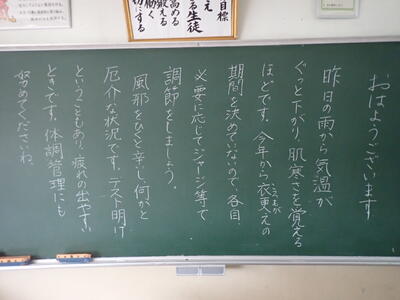 おはようございます
昨日の雨から気温が
ぐっと下がり、肌寒さを覚える
ほどです。今年から衣更えの
ころもが
期間を決めていないので、各自
必要に応じてジャージ等で
調節をしましょう。
風邪をひと辛し何かと
厄介な状況です。テスト明け
ということもあり、疲れの出やすい
ときです。体調管理にも
努めてくださいね。
目標
える
る生徒
高める
鍛える
働く
切にする